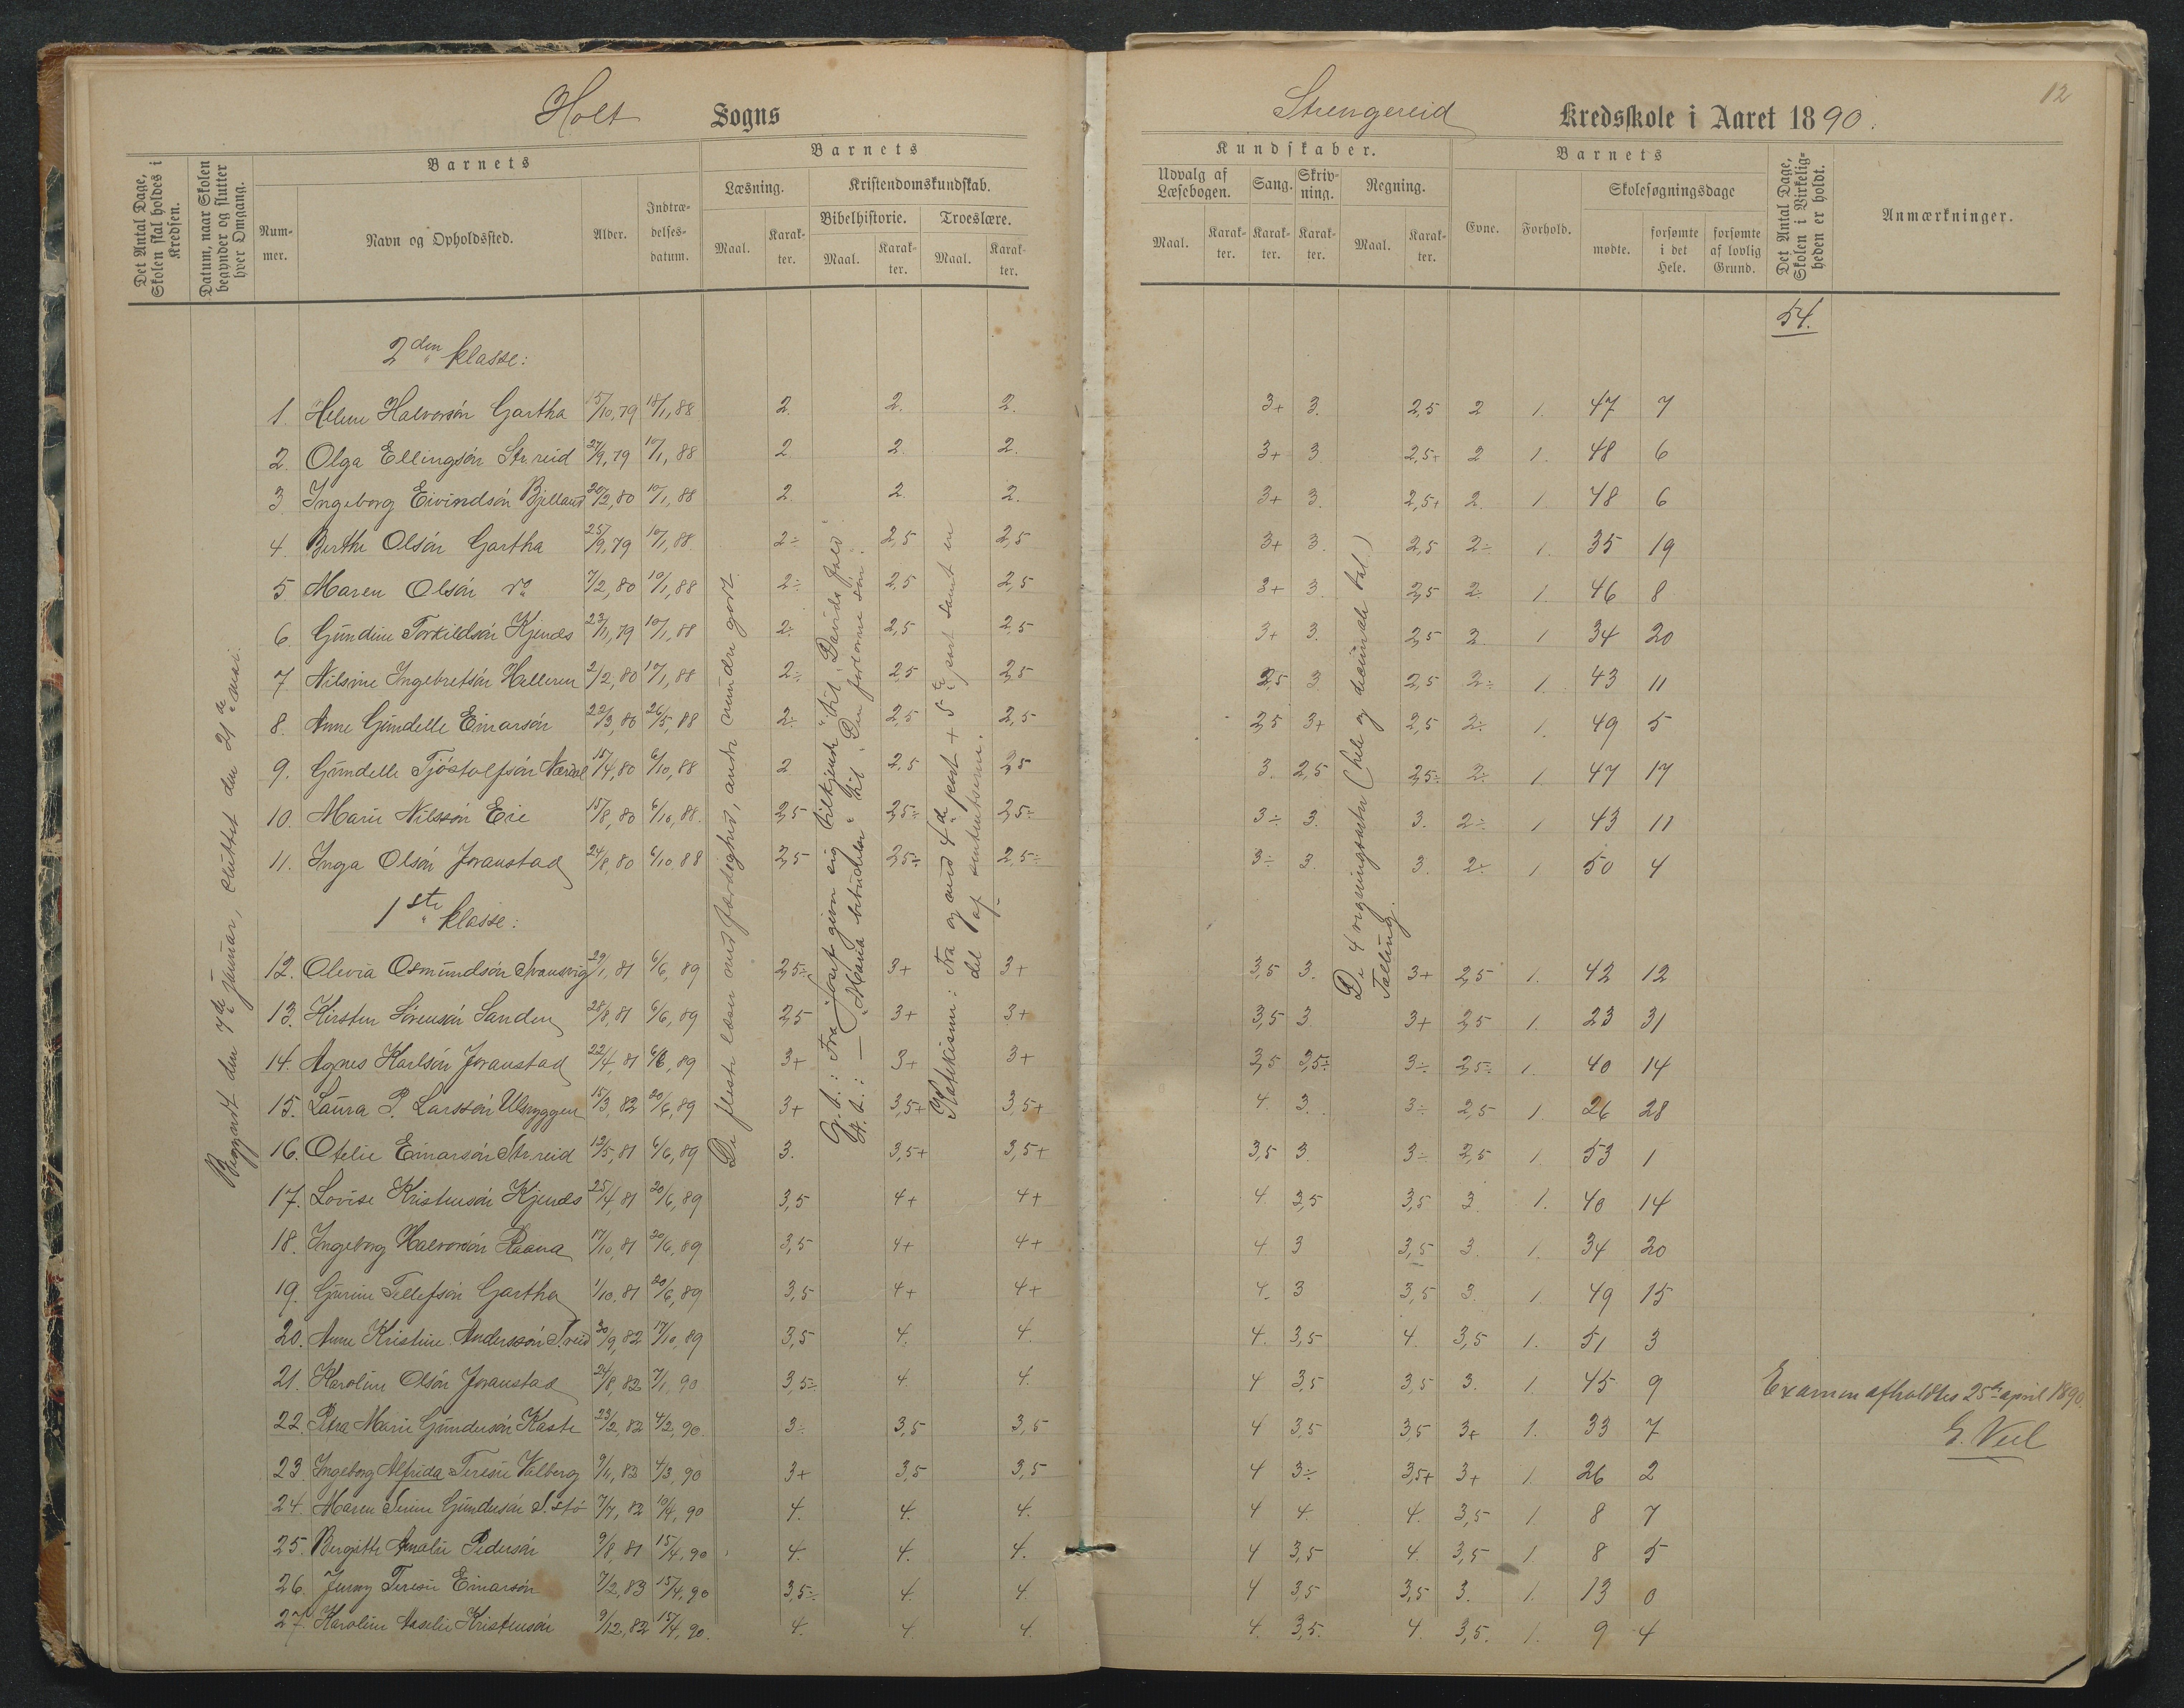 Holt Sogns
Strengereid Kredsskole i Aaret 1890.
12
Det Antal Dage, Skolen skal holdes i Kredsen.
Datum, naar Skolen begynder og slutter hver Omgang.
Barnets
Nummer.
Navn og Opholdssted.
Alder.
Indtrædelsesdatum.
Barnets
Læsning.
Maal.
Karakter.
Kristendomskundskab.
Bibelhistorie.
Maal.
Karakter.
Troeslære.
Maal.
Karakter.
Kundskaber.
Udvalg af Læsebogen.
Maal.
Karakter.
Sang.
Karakter.
Skrivning.
Karakter.
Regning.
Maal.
Karakter.
Barnets
Evne.
Forhold.
Skolesøgningsdage
mødte.
forsømte i det Hele.
forsømte af lovlig Grund.
Det Antal Dage, Skolen i Virkeligheden er holdt.
Anmærkninger.
54.
Begyndt den 7de januar, sluttet den 21de mai.
De fleste læser med færdighed, andre mindre godt.
G.t.: Fra Josef giver sig tilkjende" til „Davids fald".
N.t.: — „Maria bebudelse" til „Den fortorne søn".
Katekisme: Fra og med 4de part + 5te part samt en
del af sentenserne.
De 4 regningsarter (hele og decimale tal.)
Tælling.
2den klasse:
1. Helene Halvorsön Gartha 15/10, 79 18/1, 88 2. 2. 2. 3+ 3. 2,5 2 1. 47 7
2. Olga Ellingsön Str.reid 27/9, 79 10/1, 88 2 2. 2. 3+ 3 2,5+ 2 1. 48 6
3. Ingeborg Eivindsön Bjelland 20/2, 80 10/1, 88 2. 2 2. 3+ 3. 2,5+ 2. 1 48 6
4. Berthe Olsön Gartha 25/9, 79 10/1, 88. 2÷ 2,5 2,5 3+ 3. 2,5 2÷ 1. 35 19
5 Maren Olsön do 7/2, 80 10/1, 88 2÷ 2,5 2,5 3+ 3. 2,5 2. 1. 46 8
6. Gundine Torkildsön Kjendes 23/11, 79 10/1, 88 2÷ 2,5 2,5 3+ 3. 2,5 2 1 34 20
7 Nilsine Ingebretsön Helleren 2/2, 80 10/1, 88 2÷ 2,5 2,5 2,5 3 2,5 2÷ 1. 43 11
8. Anne Gundelle Einarsön 22/3, 80 26/5, 88 2÷ 2,5 2,5 2,5 3+ 2,5 2÷ 1. 49 5
9. Gundelle Tjöstolfsön 15/4, 80 6/10, 88 2 2,5 2,5 3. 2,5 2,5÷ 2÷ 1. 47 17
10. Marie Nilssön Eie 15/8, 80 6/10, 88. 2,5 2,5÷ 2,5÷ 3÷ 3. 3. 2÷ 1 43 11
11. Inga Olsön Joranstad 24/8, 80 6/10 88 2,5 2,5÷ 2,5÷ 3÷ 3. 3. 2÷ 1 50 4
1ste klasse:
12. Olevia Osmundsön Svansvig 29/1, 81 6/6, 89 2,5÷ 3+ 3+ 3,5 3. 3+ 2,5 1. 42 12
13. Kirsten Sörensön Sanden 28/8, 81 6/6, 89 2,5 3+ 3+ 3,5 3 3+ 2,5 1. 23 31
14. Agnes Karlsön Joranstad 22/4, 81 6/6, 89 3+ 3+ 3+ 3,5 3,5÷ 3÷ 2,5÷ 1. 40 14
15. Laura P. Larssön Ulsryggen 15/3, 82 20/6, 89 3+ 3,5+ 3,5+ 4. 3. 3÷ 2,5 1. 26 28
16. Otelie Einarsön Str.reid 12/5, 81 6/6, 89 3. 3,5+ 3,5+ 3,5 3. 3÷ 2,5 1. 53 1
17. Lovise Kristensön Kjendes 25/4, 81 20/6, 89 3,5 4+ 4+ 4 3,5 3,5 3. 1. 40 14
18. Ingeborg Halvorsön Raana 17/10, 81 20/6, 89 3,5 4+ 4+ 4. 3 3,5 3. 1. 34 20
19. Gurine Tellefsön Gartha 1/10, 81 20/6, 89 3,5 4+ 4+ 4. 3 3,5 3. 1. 49 15
20. Anne Kristine Anderssön S.reid 30/9, 82 17/10, 89 3,5 4. 4. 4. 3,5 4. 3,5 1. 51 3
21. Karoline Olsön Joranstad 24/8, 82 7/1, 90 3,5÷ 4. 4. 4 3,5 3,5 3. 1. 45 9
22. Petra Marie Gundersön Kaste 23/2, 82 4/2, 90. 3÷ 3,5 3,5 4 3,5 3,5 3+ 1. 33 7
23. Ingeborg Alfrida Teresie Valberg 9/4, 83 4/3, 90 3+ 3,5 3,5 4 3÷ 3,5+ 3+ 1. 26 2
24. Maren Gundersön S.stö 7/7, 82 10/4, 90 4. 4. 4. 4 4. 4. 3,5 1. 8 7
25. Bergitte Amalie Pedersön 9/8, 81 15/4, 90 4. 4. 4. 4 3,5 4. 3,5 1 8 5
26. Jenny Teresie Einarsön 7/2, 83 15/4, 90 3,5÷ 4. 4. 4 3,5 3,5 3. 1. 13 0
27. Karoline Aaselie Kristensön 9/12, 82 15/4, 90. 4. 4. 4. 4. 3,5. 4. 3,5. 1. 9 4
Examen afholdtes 25de april 1890.